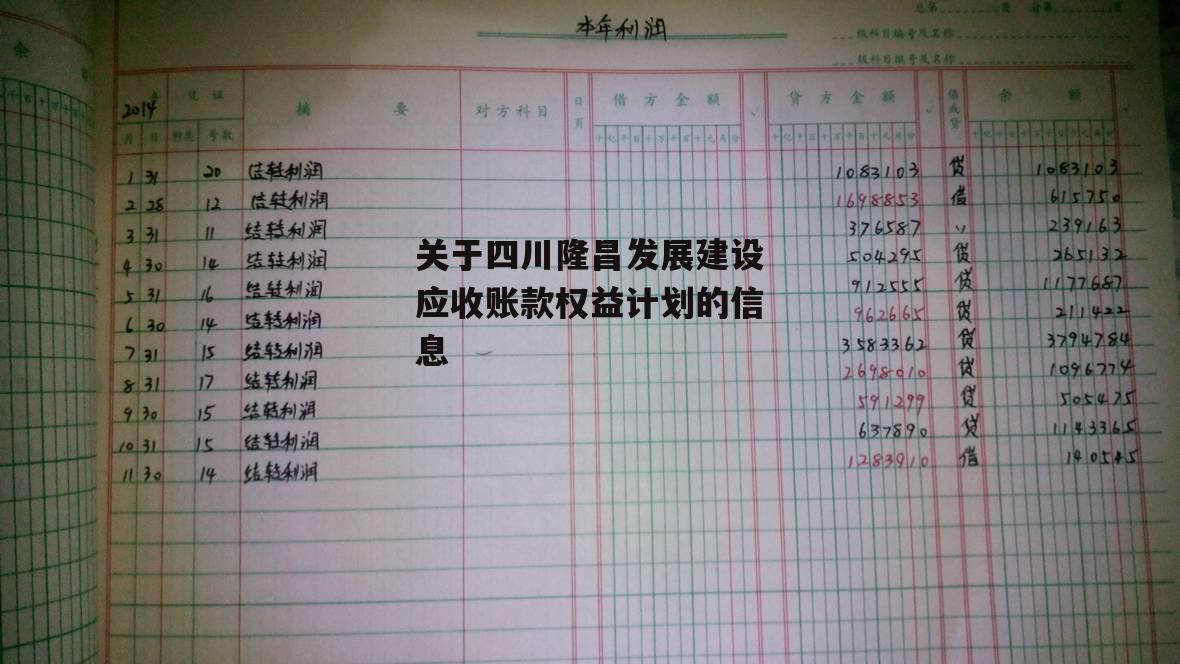 总第 页 分第 页
本年利润
级科目编号及名称
级科目编号及名称
余
2014 年 凭证 摘要 对方科目 日页 借方金额 √ 贷方金额 √ 借或贷 余额 √
月 日 种类 号数 十亿千百十万千百十元角分 十亿千百十万千百十元角分 十亿千百十万千百十元角分
1 31 20 结转利润 1083103 贷 1083103
2 28 12 结转利润 1698853 借 615750
3 31 11 结转利润 376587 〃 239163
4 30 14 结转利润 504295 贷 265132
5 31 16 结转利润 912555 贷 1177687
6 30 14 结转利润 962665 贷 211422
7 31 15 结转利润 3583362 贷 3794784
8 31 17 结转利润 2698010 贷 1096774
9 30 15 结转利润 591299 贷 505475
10 31 15 结转利润 637890 贷 1143365
11 30 14 结转利润 1283910 借 140545
关于四川隆昌发展建设
应收账款权益计划的信
息